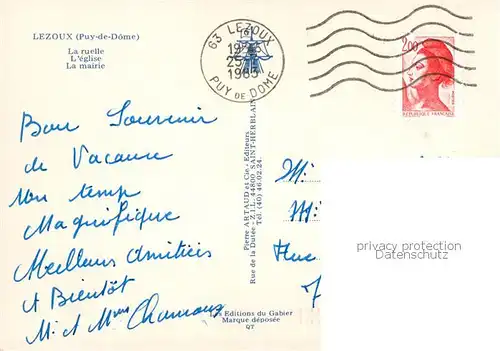 LEZOUX (Puy-de-Dôme)
La ruelle
L'église
La mairie
63 LEZOUX
25
1985
PUY DE DOME
2,00
RÉPUBLIQUE FRANÇAISE
Bon Souvenir
de Vacance
Un temp
Magnifique
Meilleurs Amitiés
A Bientôt
Mr et Mme
Pierre ARTAUD et Cie - Editeurs
Rue de la Dutée - Z.I.L. 44800 SAINT-HERBLAIN
Tél. (40) 46.02.24.
Les Editions du Gabier
Marque déposée
QT
privacy protection
Datenschutz